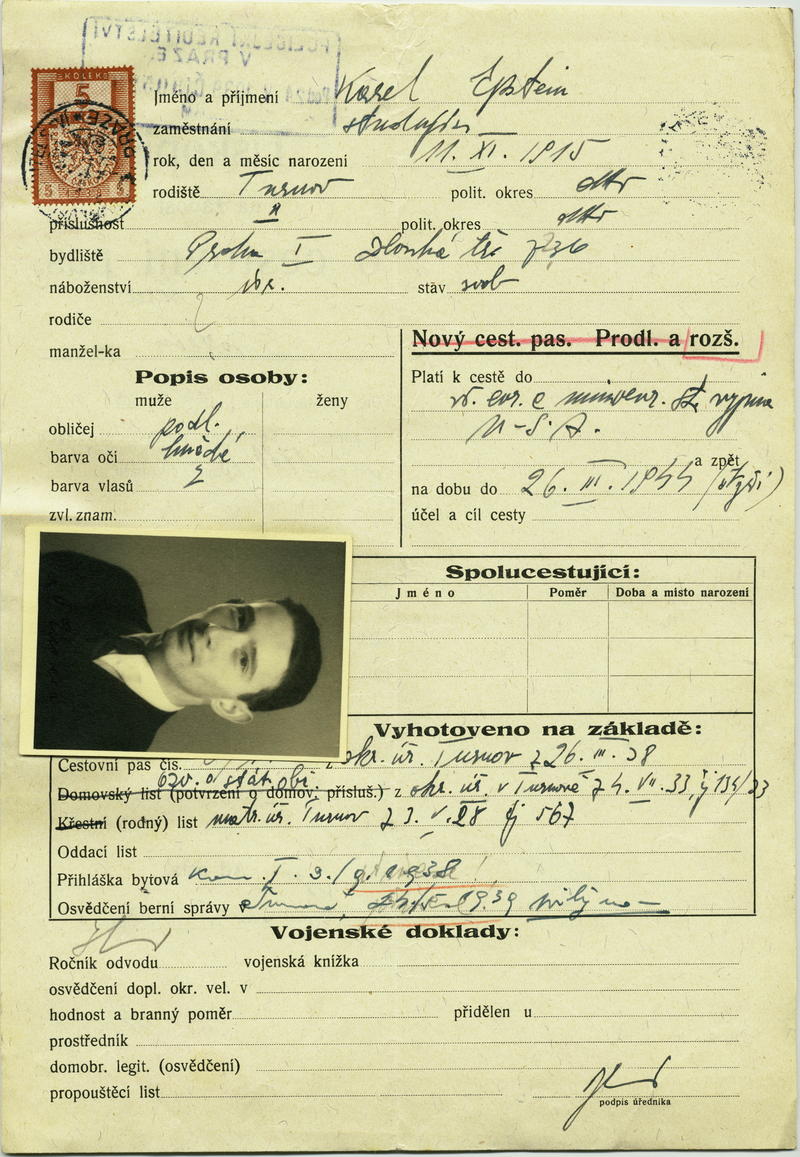 POLICEJNÍ ŘEDITELSTVÍ
V PRAZE
KOLEK
5
5 5
Jméno a příjmení Karel Epstein
zaměstnání
rok, den a měsíc narození 11. XI. 1915
rodiště Turnov polit. okres dtto
příslušnost " polit. okres dtto
bydliště Praha I Dlouhá tř. 736
náboženství izr. stav svob
rodiče
manžel-ka
Nový cest. pas. Prodl. a rozš.
Popis osoby:
muže ženy
obličej podl.
barva očí hnědé
barva vlasů "
zvl. znam.
Platí k cestě do
vš. evr. e mimoevr. st. vyjma
U.S.A.
a zpět
na dobu do 26. III. 1944
účel a cíl cesty
Spolucestující:
Jméno Poměr Doba a místo narození
Vyhotoveno na základě:
Cestovní pas čís. z okr. úř. Turnov z 26. III. 38
osv. o stát. obč.
Domovský list (potvrzení o domov. přísluš.) z okr. úř. v Turnově z 4. VII. 33, čj 134/33
Křestní (rodný) list matr. úř. Turnov z 3. V. 28 čj 567
Oddací list
Přihláška bytová kom. I. 3./9. 1938
Osvědčení berní správy Turnov, 1939
Vojenské doklady:
Ročník odvodu vojenská knížka
osvědčení dopl. okr. vel. v
hodnost a branný poměr přidělen u
prostředník
domobr. legit. (osvědčení)
propouštěcí list
podpis úředníka